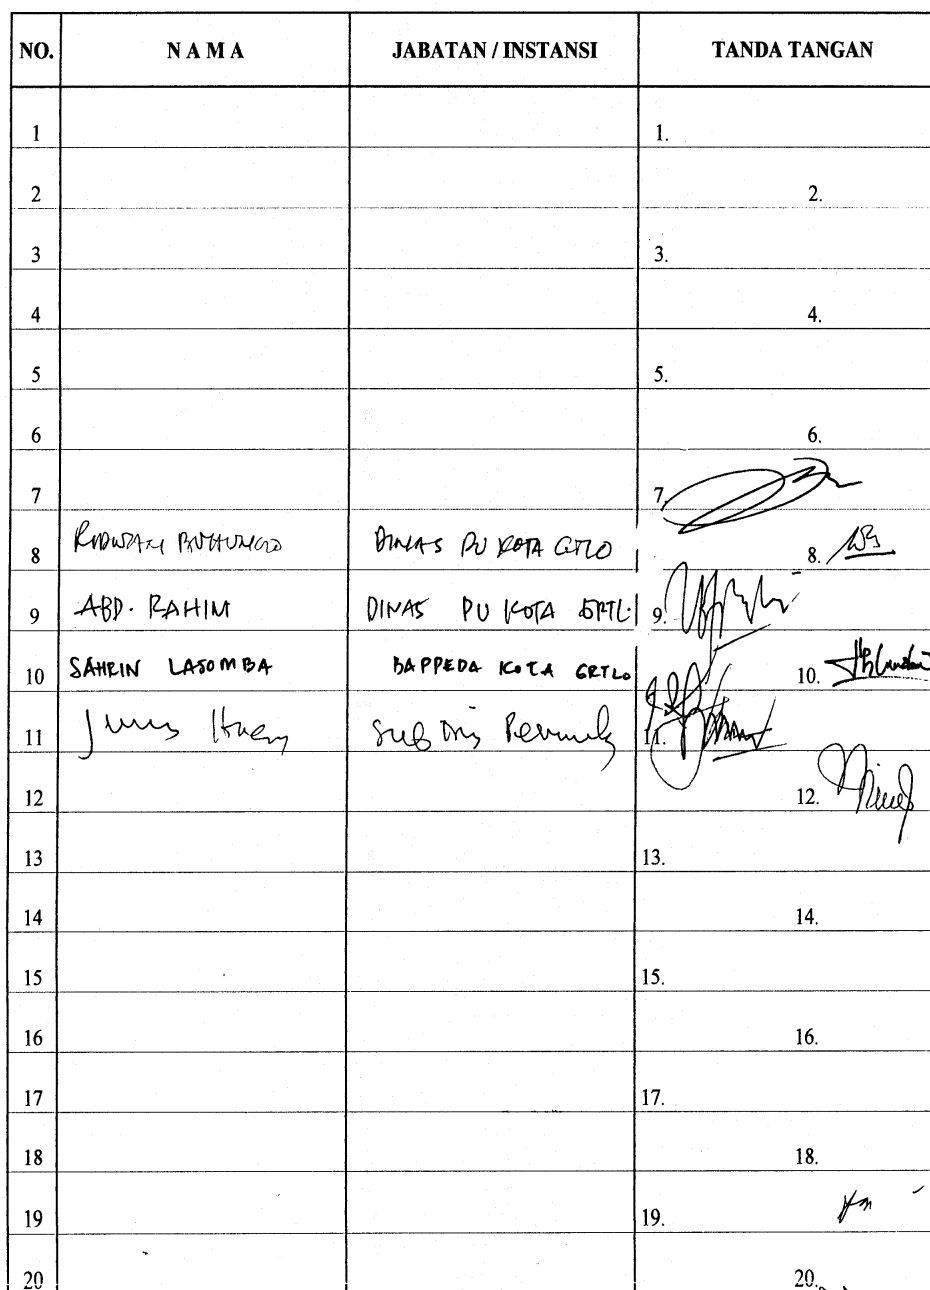 NO. N A M A JABATAN / INSTANSI TANDA TANGAN
1 1.
2 2.
3 3.
4 4.
5 5.
6 6.
7 7.
8 DINAS PU KOTA GTLO 8.
9 ABD. RAHIM DINAS PU KOTA GRTL. 9.
10 SAHRIN LASOMBA BAPPEDA KOTA GRTLO 10.
11 11.
12 12.
13 13.
14 14.
15 15.
16 16.
17 17.
18 18.
19 19.
20 20.